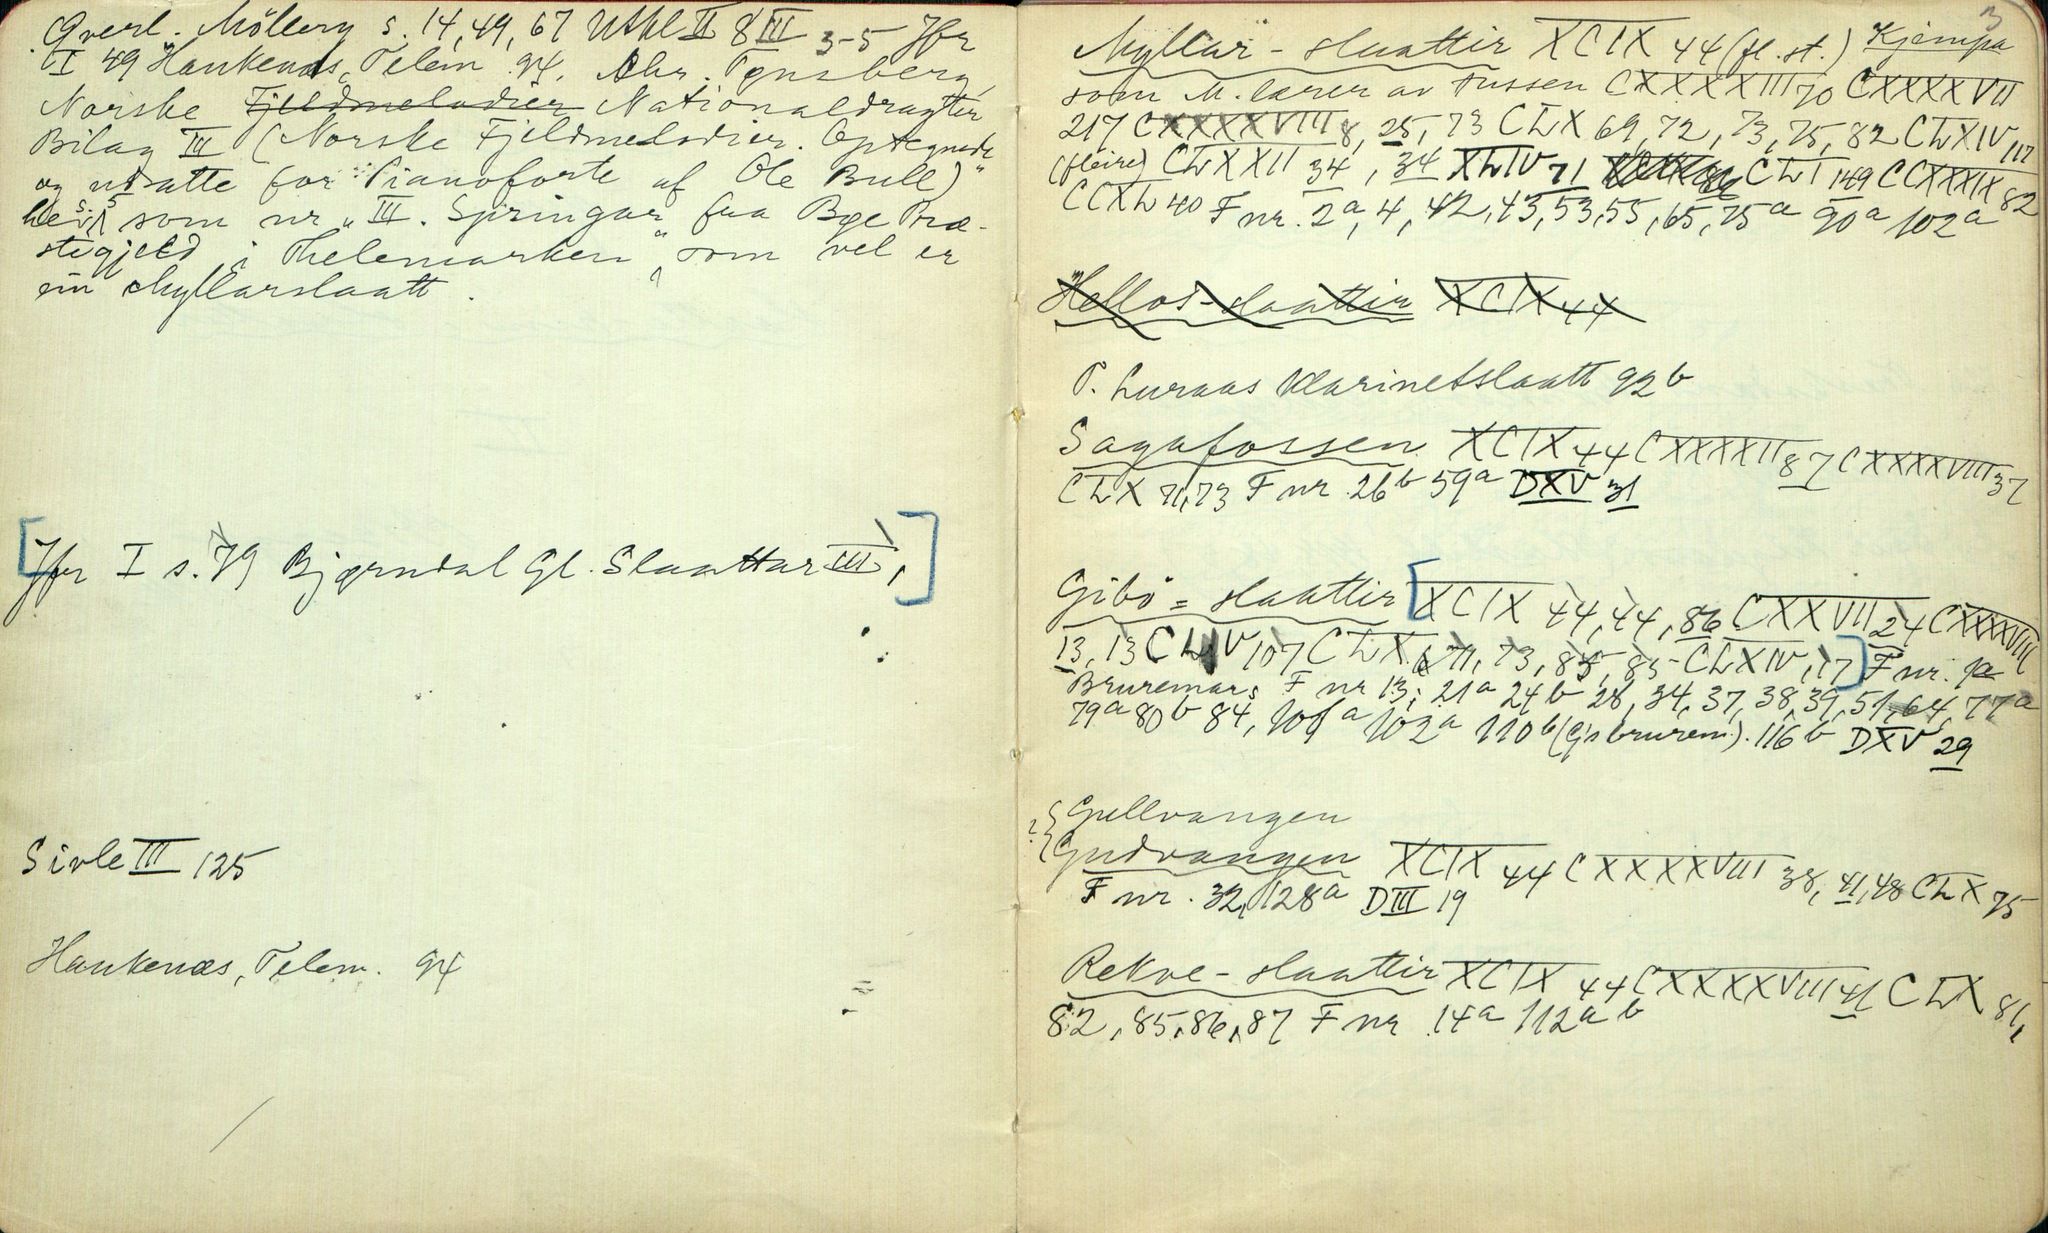 Qverl. Möllerg s. 14, 49, 67 Utkl II 8 III 3-5 Jfr
I 49 Haukenæs, Telem 94. Chr. Tønsberg,
Norske Fjeldmelodier Nationaldragter
Bilag III (Norske Fjeldmelodier. Optegnede
og udsatte for Pianoforte af Ole Bull)"
s. 5 som nr „III. Springar" fra Bge Præ-
stegjeld i Thelemarken", som vel er
ein Myllarslaatt.
[Jfr I s. 79 Bjørndal Gl. Slaattar III,]
Sivle III 125
Haukenæs, Telem. 94
3
Myllar-slaattir XCIX 44 (fl. st.) Kjempa
som M. lærer av Fussen CXXXXIII 70 CXXXXVII
217 CXXXXVIII 8, 25, 73 CLX 69, 72, 73, 75, 82 CLXIV 117
(fleire) CLXXII 34, 34 XLIV 71 CLI 149 CCXXXIX 82
CCXL 40 F nr. 2a, 4, 42, 43, 53, 55, 65, 75a 90a 102a
Hellos-slaattir XCIX 44
T. Luraas Klarinetslaatt 92b
Sagafossen XCIX 44 CXXXXII 87 CXXXXVIII 37
CLX 71, 73 F nr. 26b 59a DXV 31
Gibø-slaattir [XCIX 44, 44, 86 CXXVII 24 CXXXXVIII
13, 13 CLIV 107 CLX 71, 73, 85, 85 CLXIV, 17] F nr.
Bruremars F nr 13, 21a 24b 28, 34, 37, 38, 39, 51, 64, 77a
79a 80b 84, 101a 102a 110b (Gjs brurem). 116b DXV 29
? { Gullvangen
Gudvangen XCIX 44 CXXXXVIII 38, 41, 48 CLX 75
F nr. 32, 128a DIII 19
Rekve-slaattir XCIX 44 CXXXXVIII 41 CLX 81,
82, 85, 86, 87 F nr 14a 112a b